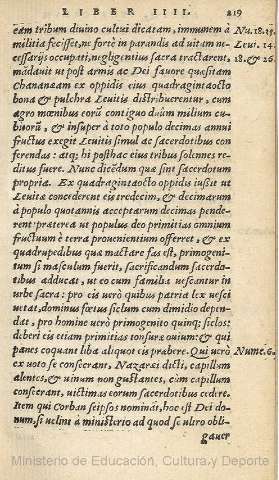 LIBER IIII. 219
eam tribum diuino cultui dicatam, immunem à Nu. 18.19.
militia fecisset, ne fortè in parandis ad uitam ne- Leuit. 14.
cessarijs occupati, negligentius sacra tractarent, 18. & 26.
mādauit ut post armis ac Dei fauore quæsitam
Chananæam ex oppidis eius quadragintaocto
bona & pulchra Leuitis distribuerentur, cum
agro mœnibus eorū contiguo duūm milium cu-
bitorū, & insuper à toto populo decimas annui
fructus exegit Leuitis simul ac sacerdotibus con
ferendas: atq; hi posthac eius tribus solennes re-
ditus fuere. Nunc dicēdum quæ sint sacerdotum
propria. Ex quadragintaocto oppidis iussit ut
Leuitæ concederent eis tredecim, & decimarum
à populo quotannis acceptarum decimas pende-
rent: præterea ut populus deo primitias omnium
fructuum è terra prouenientium offerret, & ex
quadrupedibus quæ mactare fas est, primogeni-
tum si masculum fuerit, sacrificandum sacerdo-
tibus adducat, ut eo cum familia uescantur in
urbe sacra: pro eis uerò quibus patria lex uesci
uetat, dominus fœtus siclum cum dimidio depen
dat, pro homine uerò primogenito quinq; siclos:
deberi eis etiam primitias tonsuræ ouium: & qui
panes coquant liba aliquot eis præbere. Qui uerò Nume. 6.
ex uoto se consecrant, Nazaræi dicti, capillum
alentes, & uinum non gustantes, cùm capillum
consecrant, uictimas eorum sacerdotibus cedere.
Item qui Corban seipsos nomināt, hoc est Dei do-
num, si uelint à ministerio ad quod se ultro obli-
gauer
Ministerio de Educación, Cultura y Deporte